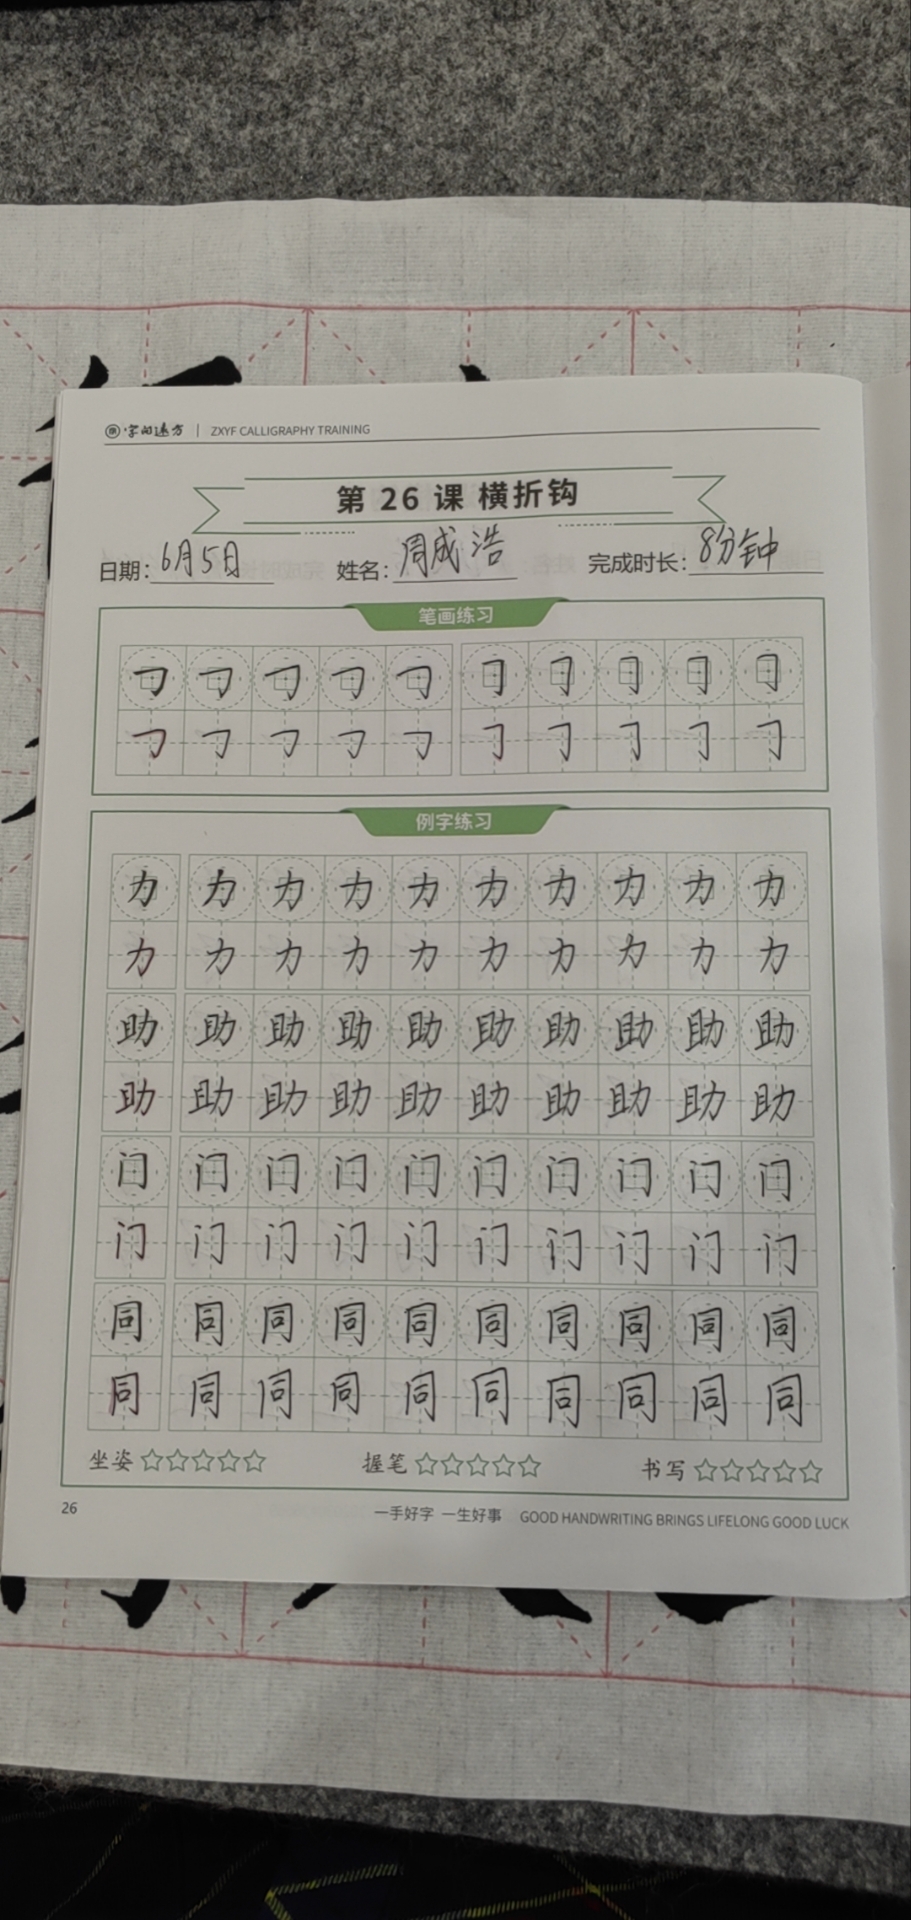 字的远方 | ZXYF CALLIGRAPHY TRAINING
第 26 课 横折钩
日期：6月5日 姓名：周成浩 完成时长：8分钟
笔画练习
𠃌 𠃌 𠃌 𠃌 𠃌 𠃌 𠃌 𠃌 𠃌 𠃌
𠃌 𠃌 𠃌 𠃌 𠃌 𠃌 𠃌 𠃌 𠃌 𠃌
例字练习
力 力 力 力 力 力 力 力 力 力
力 力 力 力 力 力 力 力 力 力
助 助 助 助 助 助 助 助 助 助
助 助 助 助 助 助 助 助 助 助
门 门 门 门 门 门 门 门 门 门
门 门 门 门 门 门 门 门 门 门
同 同 同 同 同 同 同 同 同 同
同 同 同 同 同 同 同 同 同 同
坐姿 ☆☆☆☆☆ 握笔 ☆☆☆☆☆ 书写 ☆☆☆☆☆
26 一手好字 一生好事 GOOD HANDWRITING BRINGS LIFELONG GOOD LUCK